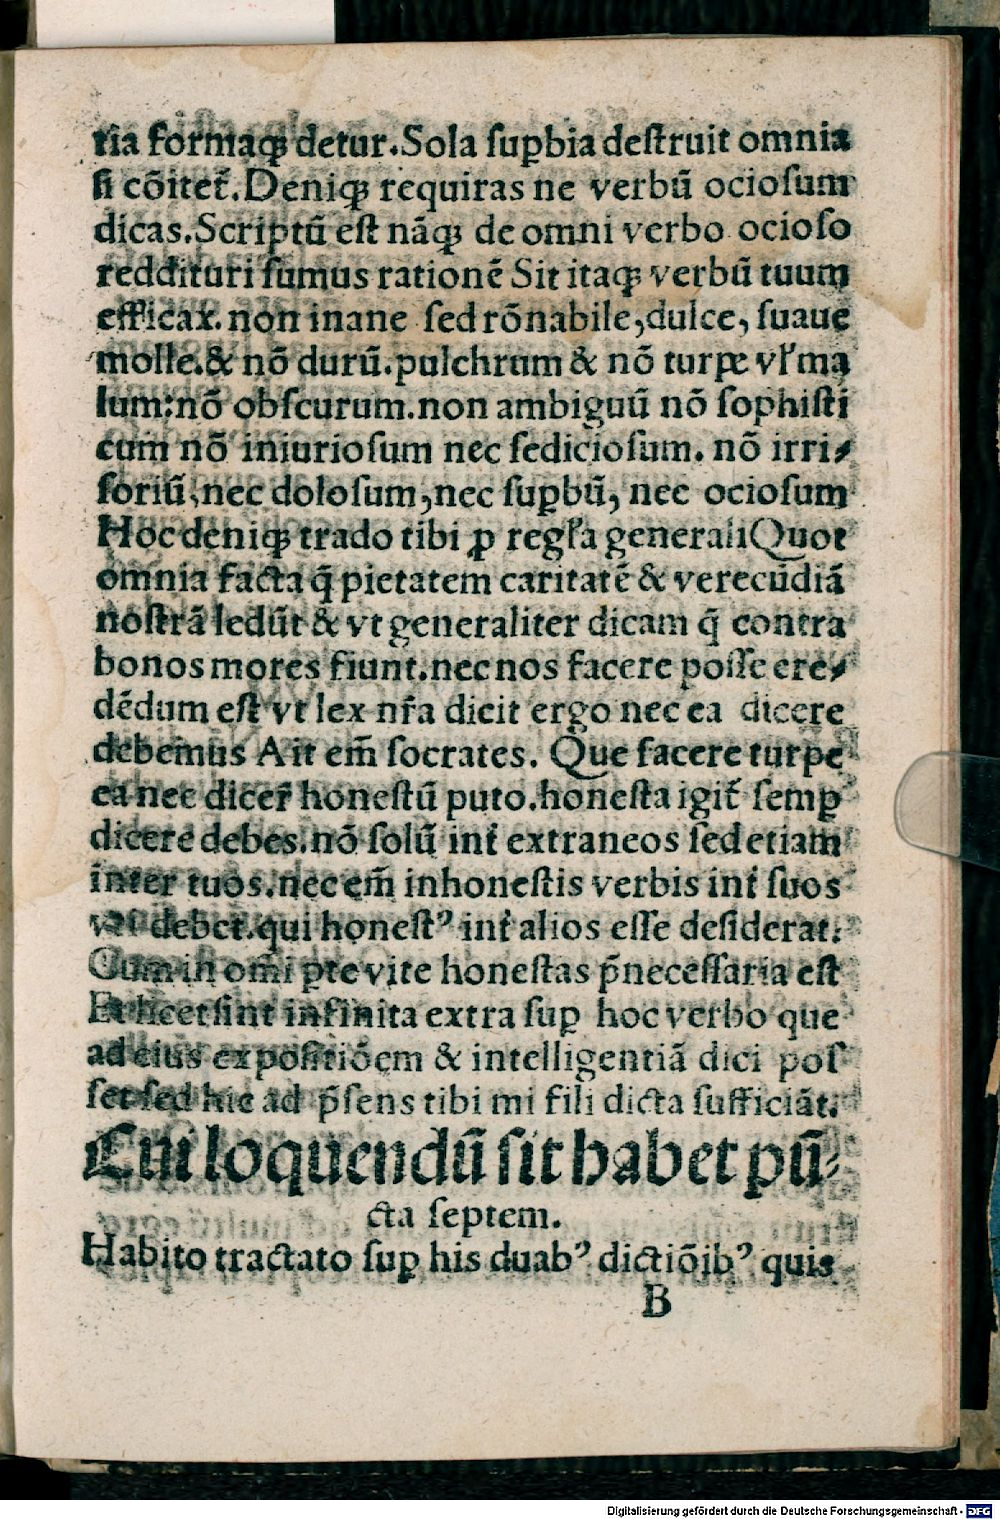 ria formaqꝫ detur.Sola ſuꝑbia deſtruit omnia
ſi cõitet᷑.Deniqꝫ requiras ne verbũ ocioſum
dicas.Scriptũ eſt nãqꝫ de omni verbo ocioſo
reddituri ſumus rationẽ Sit itaqꝫ verbũ tuum
efficax.non inane ſed rõnabile,dulce, ſuaue
molle.& nõ durũ.pulchrum & nõ turpe vl̕ ma
lum:nõ obſcurum.non ambiguũ nõ ſophiſti
cum nõ iniurioſum nec ſedicioſum. nõ irri⸗
ſoriũ,nec doloſum,nec ſuꝑbũ, nec ocioſum
Hoc deniqꝫ trado tibi ꝓ regl̕a generali Quot
omnia facta q̃ pietatem caritatẽ & verecũdiã
noſtrã ledũt & vt generaliter dicam q̃ contra
bonos mores fiunt.nec nos facere poſſe cre⸗
dẽdum eſt vt lex nr̃a dicit ergo nec ea dicere
debemus Ait em̃ ſocrates. Que facere turpe
ea nec dicer̃ honeſtũ puto.honeſta igit᷑ ſemꝑ
dicere debes.nõ ſolũ int̕ extraneos ſed etiam
inter tuos.nec em̃ inhoneſtis verbis int̕ ſuos
vti debet.qui honeſtꝰ int̕ alios eſſe deſiderat.
Cum in om̃i ꝑte vite honeſtas p̃neceſſaria eſt
Et licet ſint infinita extra ſuꝑ hoc verbo que
ad eius expoſitiõem & intelligentiã dici poſ
ſet ſed hic ad p̃ſens tibi mi fili dicta ſufficiãt.
Cui loquendũ ſit habet pũ⸗
cta ſeptem.
Habito tractato ſuꝑ his duabꝰ dictiõibꝰ quis
B
Digitalisierung gefördert durch die Deutsche Forschungsgemeinschaft - DFG